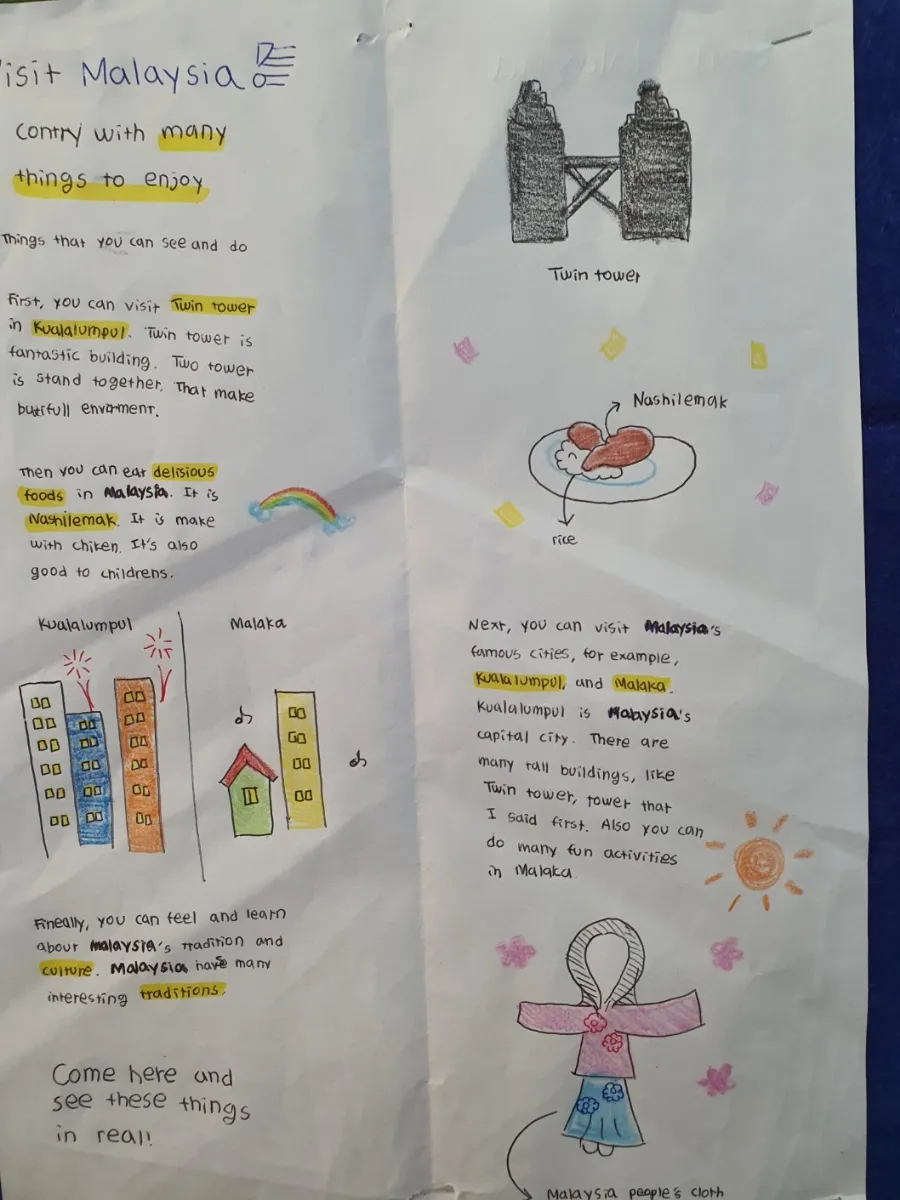 isit Malaysia
Contry with many
things to enjoy
Things that you can see and do
First, you can visit Twin tower
in Kualalumpul. Twin tower is
fantastic building. Two tower
is stand together. That make
butifull envirment.
Then you can eat delisious
foods in Malaysia. It is
Nashilemak. It is make
with chiken. It's also
good to childrens.
Kualalumpul
Malaka
Fineally, you can feel and learn
about Malaysia's tradition and
culture. Malaysia have many
interesting traditions.
Come here and
see these things
in real!
Twin tower
Nashilemak
rice
Next, you can visit Malaysia's
famous cities, for example,
Kualalumpul, and Malaka.
Kualalumpul is Malaysia's
capital city. There are
many tall buildings, like
Twin tower, tower that
I said first. Also you can
do many fun activities
in Malaka
Malaysia people's cloth